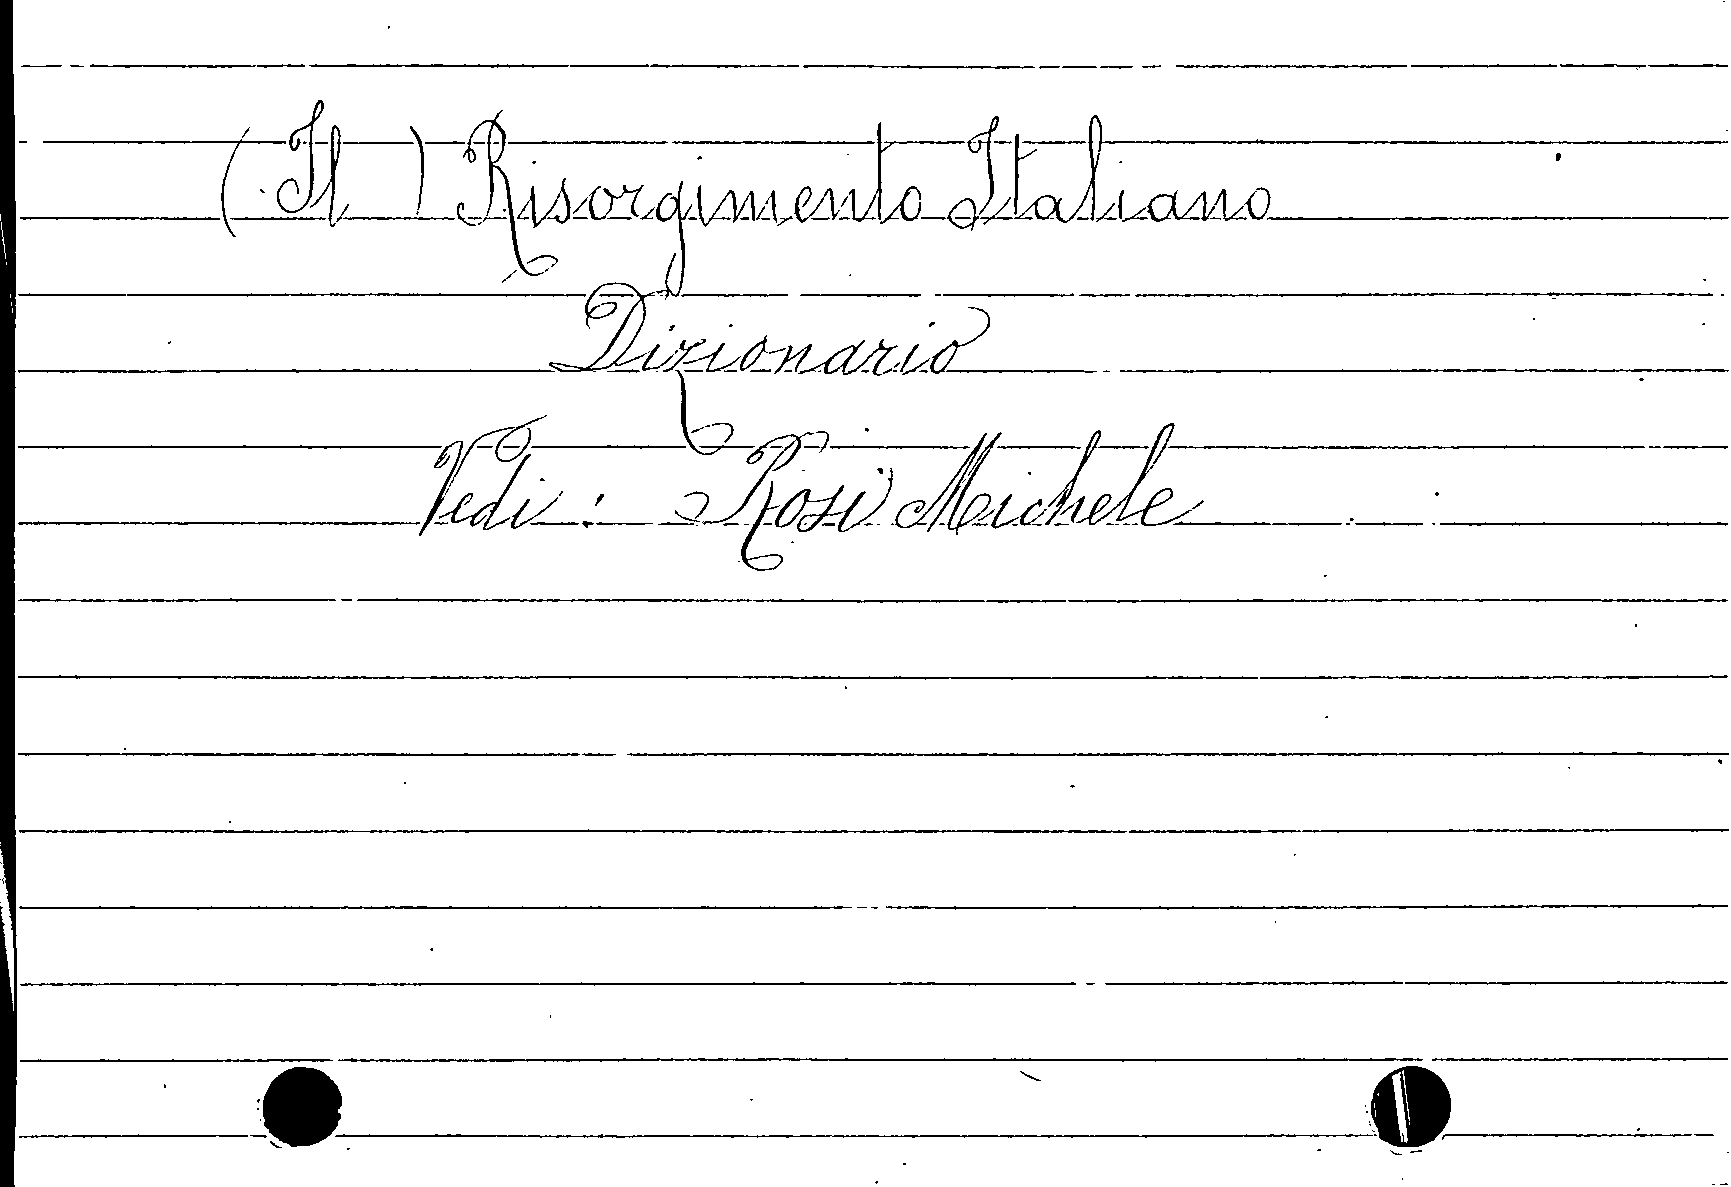 (Il) Risorgimento Italiano
Dizionario
Vedi: Rosi Michele